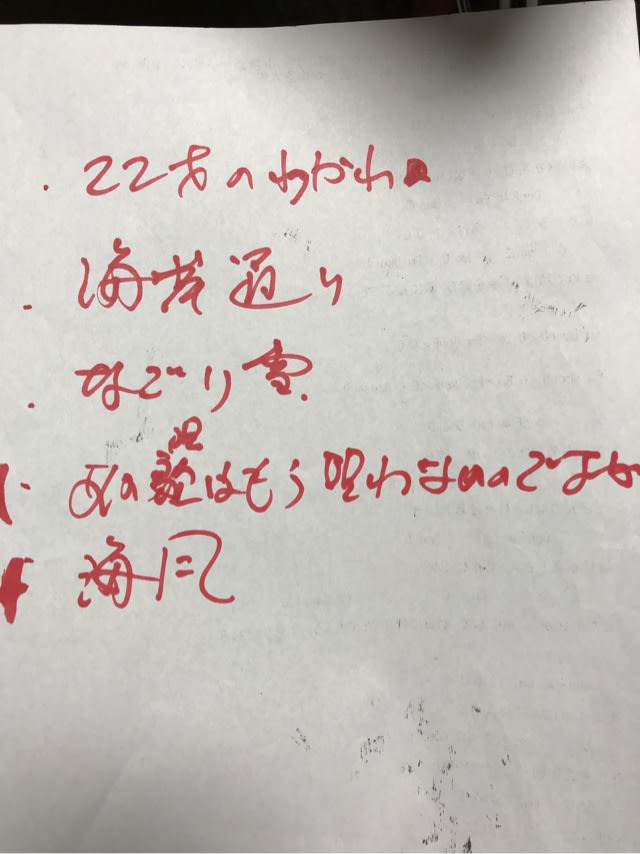 ・22才のわかれ
・海岸通り
・なごり雪
・あの唄はもう唄わないのですか
海風